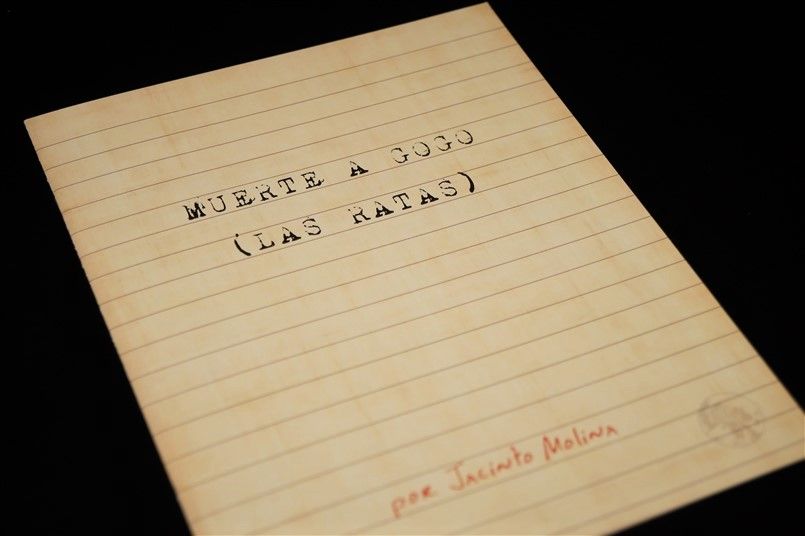 MUERTE A GOGO
(LAS RATAS)
por Jacinto Molina